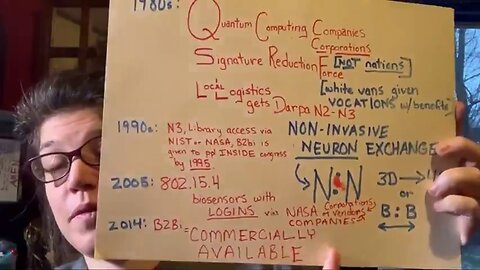 1980s: Quantum Computing Companies
Corporations
Signature Reduction Force [NOT nations]
Local Logistics [white vans given
gets Darpa N2-N3 VOCATIONS w/benefits]
1990s: N3, Library access via
NIST or NASA, B2bi is
given to ppl INSIDE congress
by 1995
NON-INVASIVE
NEURON EXCHANGE
N:N 3D →
or
B:B
2005: 802.15.4
biosensors with
LOGINS via NASA Corporations
or vendors
COMPANIES
2014: B2Bi =
COMMERCIALLY
AVAILABLE